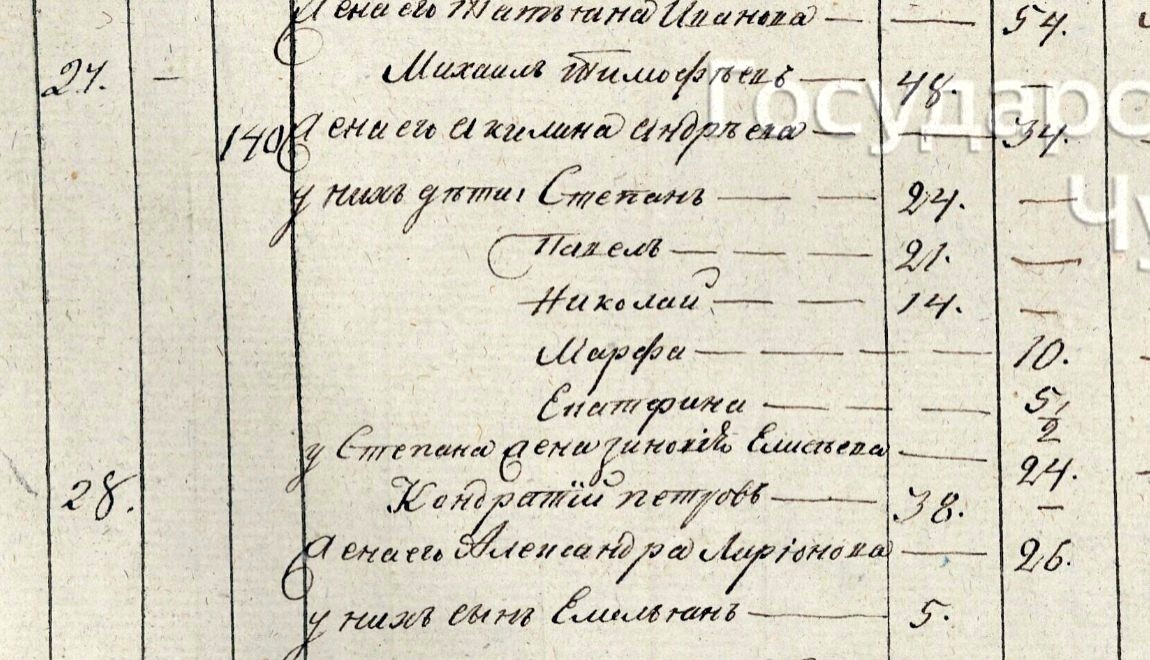 Жена его Татьяна Иванова — — 54.
27. — Михаилъ Тимофѣевъ — 48. —
140 Жена его Акилина Андрѣева — — 34.
у нихъ дѣти: Степанъ — — 24. —
Павелъ — — — 21. —
Николай — — — 14. —
Марфа — — — — — 10.
Екатерина — — — 5 1/2
у Степана жена Елисѣева — 24.
28. Кондратій Петровъ — 38. —
Жена его Александра Ларіонова — 26.
у нихъ сынъ Емельянъ — 5.
Государс
Чу